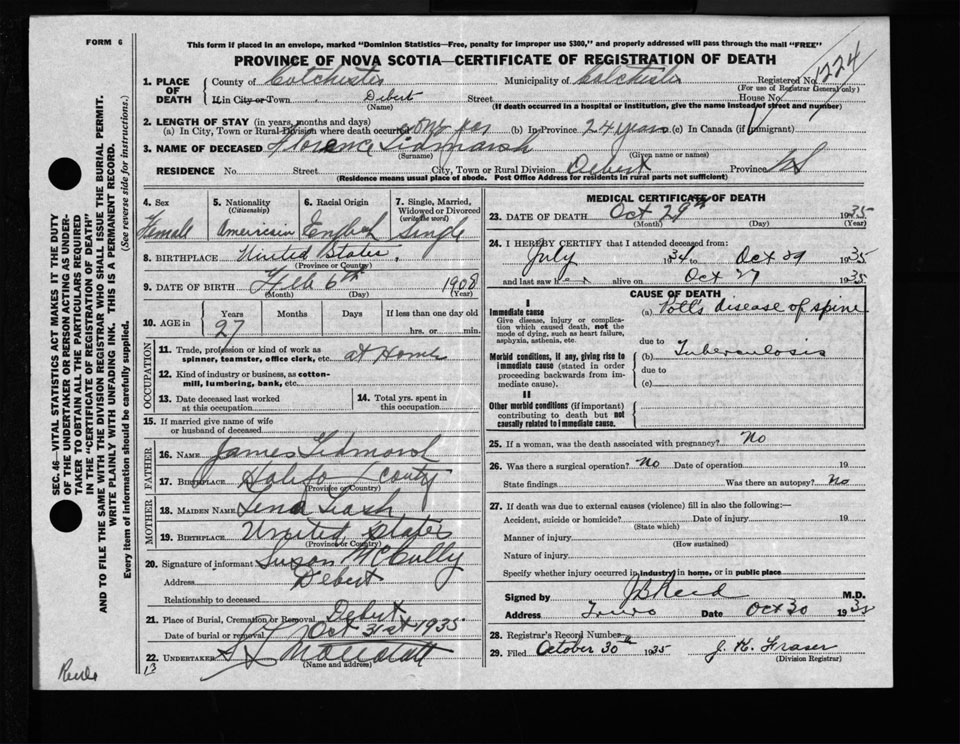 FORM 6
This form if placed in an envelope, marked "Dominion Statistics—Free, penalty for improper use $300," and properly addressed will pass through the mail "FREE"
PROVINCE OF NOVA SCOTIA—CERTIFICATE OF REGISTRATION OF DEATH
1224
1. PLACE OF DEATH
County of Colchester Municipality of Colchester Registered No.
(For use of Registrar General only)
If in City or Town Debert Street House No.
(Name) (If death occurred in a hospital or institution, give the name instead of street and number)
2. LENGTH OF STAY (in years, months and days)
(a) In City, Town or Rural Division where death occurred (b) In Province 24 years (c) In Canada (if immigrant)
3. NAME OF DECEASED Florence Tidmarsh
(Surname) (Given name or names)
RESIDENCE No Street City, Town or Rural Division Debert Province NS
(Residence means usual place of abode. Post Office Address for residents in rural parts not sufficient)
4. Sex
Female
5. Nationality
(Citizenship)
American
6. Racial Origin
English
7. Single, Married, Widowed or Divorced
(write the word)
Single
8. BIRTHPLACE United States.
(Province or Country)
9. DATE OF BIRTH Feb 6th 1908
(Month) (Day) (Year)
10. AGE in Years Months Days If less than one day old
27 hrs. or min.
OCCUPATION
11. Trade, profession or kind of work as spinner, teamster, office clerk, etc. at Home
12. Kind of industry or business, as cotton-mill, lumbering, bank, etc.
13. Date deceased last worked at this occupation
14. Total yrs. spent in this occupation
15. If married give name of wife or husband of deceased
FATHER
16. Name James Tidmarsh
17. Birthplace Halifax County
(Province or Country)
MOTHER
18. MAIDEN NAME Lena
19. BIRTHPLACE United States
(Province or Country)
20. Signature of informant Susan McCully
Address Debert
Relationship to deceased
21. Place of Burial, Cremation or Removal Debert
Date of burial or removal Oct 31st 1935
22. UNDERTAKER
(Name and address)
13
MEDICAL CERTIFICATE OF DEATH
23. DATE OF DEATH Oct 29th 1935
(Month) (Day) (Year)
24. I HEREBY CERTIFY that I attended deceased from:
July 1934 to Oct 29 1935
and last saw her alive on Oct 27 1935
CAUSE OF DEATH
I
Immediate cause
Give disease, injury or complication which caused death, not the mode of dying, such as heart failure, asphyxia, asthenia, etc.
(a) Pott's disease of spine
due to
Morbid conditions, if any, giving rise to immediate cause (stated in order proceeding backwards from immediate cause).
(b) Tuberculosis
due to
(c)
II
Other morbid conditions (if important) contributing to death but not causally related to immediate cause.
25. If a woman, was the death associated with pregnancy? No
26. Was there a surgical operation? No Date of operation 19
State findings Was there an autopsy? No
27. If death was due to external causes (violence) fill in also the following:—
Accident, suicide or homicide? Date of injury 19
(State which)
Manner of injury
(How sustained)
Nature of injury
Specify whether injury occurred in industry, in home, or in public place
Signed by J B Reid M.D.
Address Truro Date Oct 30 1935
28. Registrar's Record Number
29. Filed October 30th 1935 J. K. Fraser
(Division Registrar)
SEC. 46—VITAL STATISTICS ACT MAKES IT THE DUTY
OF THE UNDERTAKER OR PERSON ACTING AS UNDER-
TAKER TO OBTAIN ALL THE PARTICULARS REQUIRED
IN THE "CERTIFICATE OF REGISTRATION OF DEATH"
AND TO FILE THE SAME WITH THE DIVISION REGISTRAR WHO SHALL ISSUE THE BURIAL PERMIT.
WRITE PLAINLY WITH UNFADING INK. THIS IS A PERMANENT RECORD.
Every item of information should be carefully supplied. (See reverse side for instructions.)